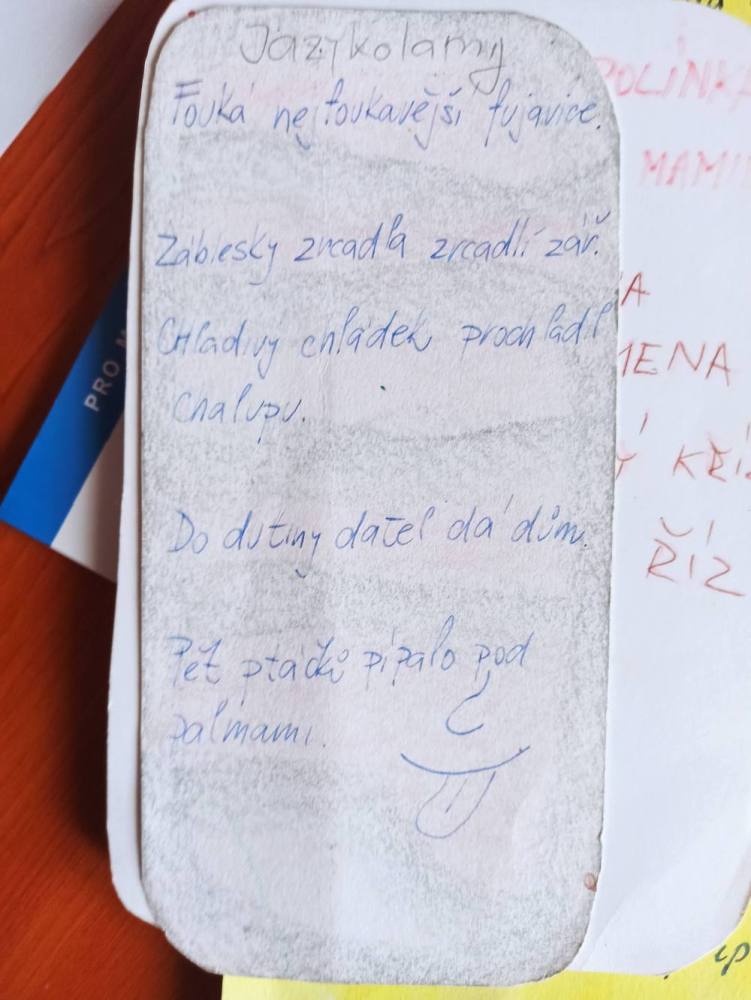 Jazykolamy
Fouká nejfoukavější fujavice.
Záblesky zrcadla zrcadlí zář.
Chladivý chládek prochladil
chalupu.
Do dutiny datel dá dům.
Pět ptáčků pípalo pod
palmami.
PRO
POLINKA
MAMI
KŘÍ
ŘÍZ